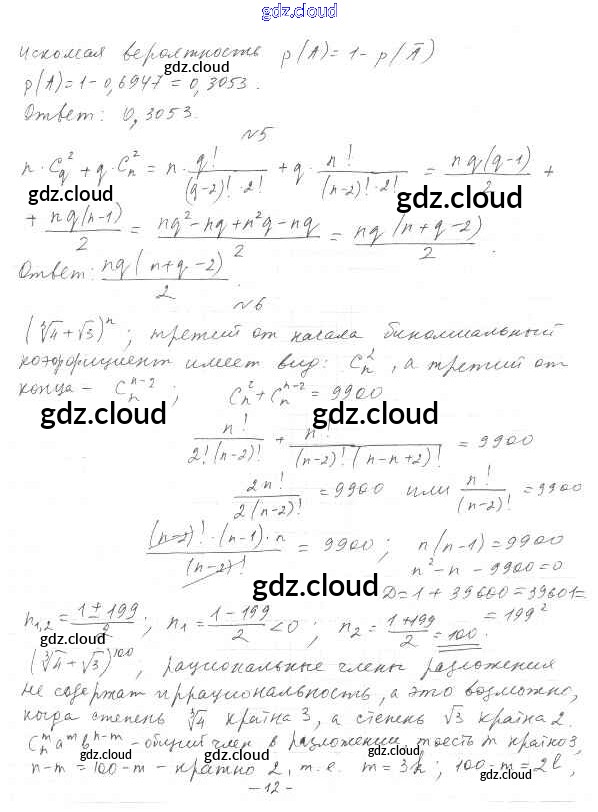 gdz.cloud
Искомая вероятность p(A) = 1 - p(Ā)
p(A) = 1 - 0,6947 = 0,3053.
Ответ: 0,3053.
№5
n · C_q^2 + q · C_n^2 = n · q!/((q-2)! · 2!) + q · n!/((n-2)! · 2!) = nq(q-1)/2 +
+ nq(n-1)/2 = (nq² - nq + n²q - nq)/2 = nq(n+q-2)/2.
Ответ: nq(n+q-2)/2
№6
(∛4 + √3)^n; третий от начала биномиальный
коэффициент имеет вид: C_n^2, а третий от
конца - C_n^{n-2}; C_n^2 + C_n^{n-2} = 9900
n!/(2!(n-2)!) + n!/((n-2)!(n-n+2)!) = 9900
2n!/(2(n-2)!) = 9900 или n!/(n-2)! = 9900
((n-2)! · (n-1) · n)/(n-2)! = 9900; n(n-1) = 9900
n² - n - 9900 = 0
D = 1 + 39600 = 39601 =
n_{1,2} = (1 ± 199)/2; n_1 = (1 - 199)/2 < 0; n_2 = (1 + 199)/2 = 100. = 199²
(∛4 + √3)^100, рациональные члены разложения
не содержат иррациональность, а это возможно,
когда степень ∛4 кратна 3, а степень √3 кратна 2.
C_n^m a^m b^{n-m} - общий член в разложении, то есть m кратно 3,
n-m = 100-m - кратно 2, т.е. m = 3k; 100-m = 2l,
- 12 -
gdz.cloud
gdz.cloud
gdz.cloud
gdz.cloud
gdz.cloud
gdz.cloud
gdz.cloud
gdz.cloud
gdz.cloud
gdz.cloud
gdz.cloud
gdz.cloud
gdz.cloud